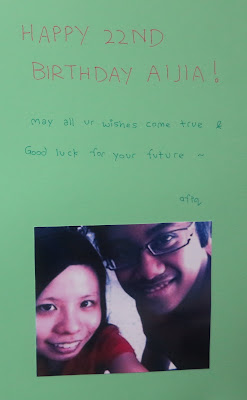 HAPPY 22ND
BIRTHDAY AIJIA!
may all ur wishes come true &
Good luck for your future ~